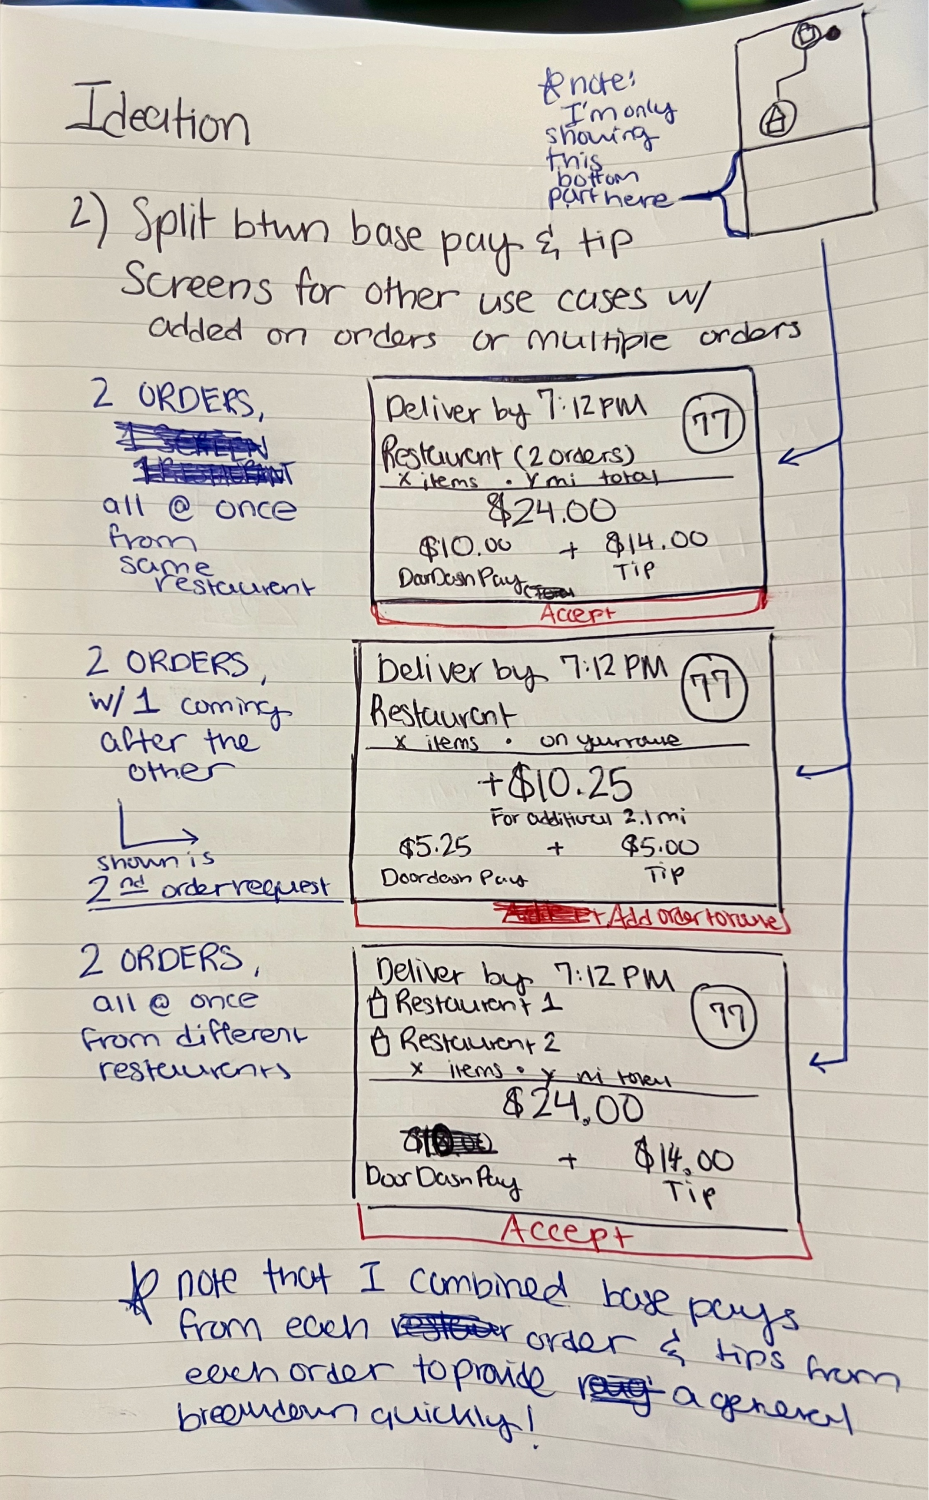 Ideation
☆ note:
I'm only
showing
this
bottom
part here
2) Split btwn base pay & tip
Screens for other use cases w/
added on orders or multiple orders
2 ORDERS,
all @ once
from
same
restaurent
Deliver by 7:12 PM
77
Restaurent (2 orders)
x items · y mi total
$24.00
$10.00 + $14.00
DoorDash Pay
Tip
Accept
2 ORDERS,
w/ 1 coming
after the
other
shown is
2nd order request
Deliver by 7:12 PM
77
Restaurent
x items · on your route
+$10.25
For additional 2.1 mi
$5.25 + $5.00
Doordash Pay
Tip
+ Add order to route
2 ORDERS,
all @ once
from different
restaurents
Deliver by 7:12 PM
77
Restaurent 1
Restaurent 2
x items · y mi total
$24.00
+ $14.00
Door Dash Pay
Tip
Accept
☆ note that I combined base pays
from each order & tips from
each order to provide a general
breakdown quickly!